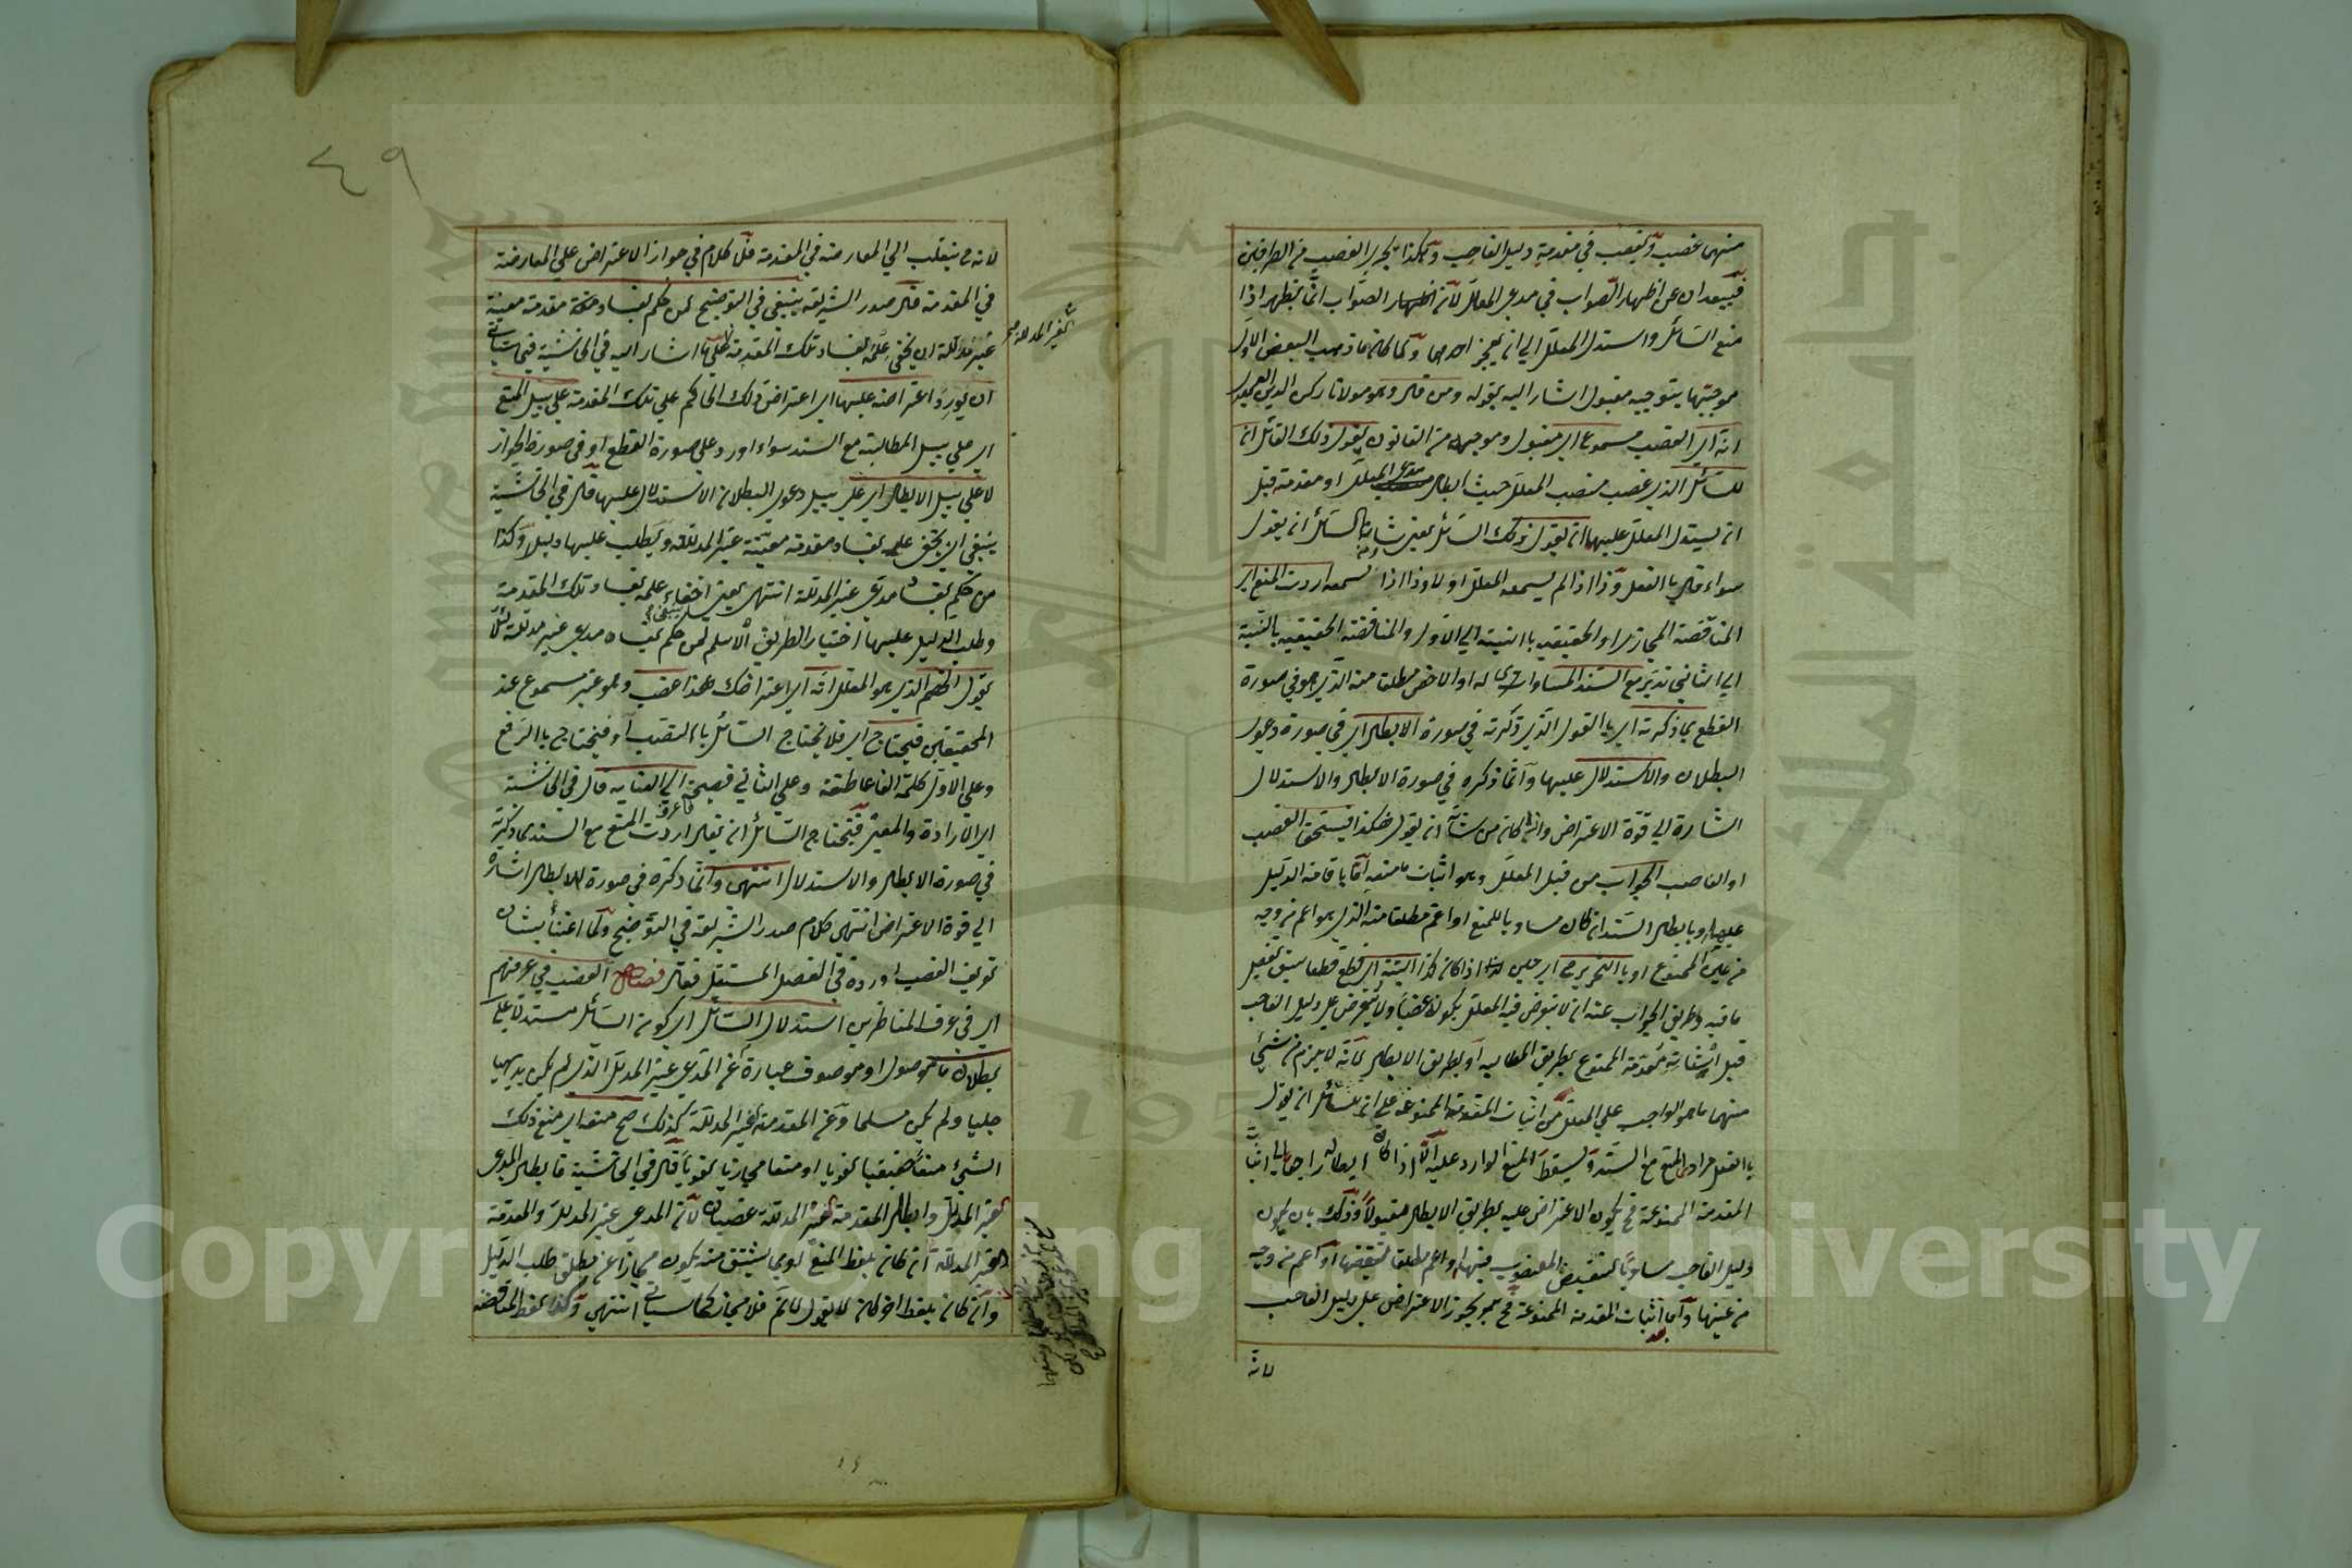 منهما غصب ويغصب في مقدمة دليل الغاصب وهكذا يجري الغصب من الطرفين
فيبعدان عن اظهار الصواب في مدعي المعلل لان اظهار الصواب انما يظهر اذا
منع السائل واستدل المعلل الي ان يعجز احدهما ولما كان ما ذهب البعض الاول
موجبها بتوجيه مقبول اشار اليه بقوله ومن قال وهو مولانا ركن الدين العميدي
انه اي الغصب مسموع اي مقبول وموجه من القانون يقول ذلك القائل ان
للسائل الذي غصب منصب المعلل حيث ابطل مدعي المعلل او مقدمة قبل
ان يستدل المعلل عليهما ان يقول ذلك السائل يعني شان السائل ان يقول
سواء قال بالفعل وذا اذا لم يسمعه المعلل اولا وذا اذا سمعه اردت المنع اي
المناقضة المجازي او الحقيقي بالنسبة الي الاول والمناقضة الحقيقية بالنسبة
الي الثاني تدبر مع السند المساوي له او الاخص مطلقا منه الذي هو في صورة
القطع بما ذكرته اي بالقول الذي ذكرته في صورة الابطال اي في صورة دعوي
البطلان والاستدلال عليها وانما ذكره في صورة الابطال والاستدلال
اشارة الي قوة الاعتراض وان كان من شأنه ان يقول هكذا فيستحق الغصب
او الغاصب الجواب من قبل المعلل وهو اثبات ما منعه اما باقامة الدليل
عليها وبابطال السند ان كان مساويا للمنع او اعم مطلقا منه الذي هو اعم من وجه
من عين الممنوع او بالتحرير اي حين اذا كان كذا البتة اي قطع قطعا سبق تفصيل
ما فيه وطريق الجواب عنه ان لا يتعرض فيه المعلل بكونه غصبا ولا يتعرض علي دليل الغاصب
قبل اثبات مقدمته الممنوع بطريق المطالبة او بطريق الابطال لانه لا يلزم من شيء
منهما ما هو الواجب علي المعلل من اثبات المقدمة الممنوعة علي ان للسائل ان يقول
بالفعل مرادي المنع مع السند ويسقط المنع الوارد عليه الا اذا كان ابطاله راجعا الي اثبات
المقدمة الممنوعة فح يكون الاعتراض عليه بطريق الابطال مقبولا وذلك بان يكون
دليل الغاصب مساويا لنقيض المغصوب فيها او اعم مطلقا لنقيضها او اعم من وجه
من عينها واما اثبات المقدمة الممنوعة فح يجوز الاعتراض علي دليل الغاصب
بعد
لانه
٤٩
لانه ح ينقلب الي المعارضة في المقدمة فلا كلام في جواز الاعتراض علي المعارضة
في المقدمة قال صدر الشريعة ينبغي في التوضيح لمن حكم بفساد صحة مقدمة معينة
غير مدللة ان يخفي علمه بفساد تلك المقدمة كما اشار اليه في الحاشية فيما سيأتي
ان يورد اعتراضه عليها اي اعتراض ذلك الحاكم علي تلك المقدمة علي سبيل المنع
اي علي سبيل المطالبة مع السند سواء اورد علي صورة القطع او في صورة الجواز
لا علي سبيل الابطال اي علي سبيل دعوي البطلان الاستدلال عليها قال في الحاشية
ينبغي ان يخفي علمه بفساد مقدمة معينة غير المدللة ويطلب عليها دليل وكذا
من حكم بفساد مدعي غير المدللة انتهي يعني اخفاء علمه بفساد تلك المقدمة
وطلب الدليل عليها اختيار الطريق الاسلم لمن حكم بفساد مدعي غير مدللة لئلا
يقول الخصم الذي هو المعلل انه اي اعتراضك هذا غصب وهو غير مسموع عند
المحققين فيحتاج اي فلا يحتاج السائل بالنصب او فيحتاج بالرفع
وعلي الاول كلمة الفا عاطفة وعلي الثاني فصيحة الي العناية قال في الحاشية
اي الارادة والمعني فيحتاج السائل ان يقال اردت المنع مع السند بما ذكرته
في صورة الابطال والاستدلال انتهي وانما ذكره في صورة الابطال اشارة
الي قوة الاعتراض انتهي كلام صدر الشريعة في التوضيح ولما اعتنأ بشان
تعريف الغصب اورده في الفصل المستقل فقال فصل الغصب في عرفهم
اي في عرف المناظرين استدلال السائل اي كون السائل مستدلا علي
بطلان ما موصول او موصوف عبارة عن المدعي غير المدلل الذي لم يكن بديهيا
جليا ولم يكن مسلما وعن المقدمة الغير المدللة كذلك صح منعه اي منع ذلك
الشيء منعا حقيقيا لغويا او منعا مجازيا لغويا قال في الحاشية فابطال المدعي
الغير المدلل وابطال المقدمة الغير المدللة غصبان لان المدعي غير المدلل والمقدمة
الغير المدللة ان كان بلفظ المنع او بما يشتق منه يكون مجازا عن مطلق طلب الدليل
وان كان بلفظ اخر كان لا يقول لا نم فلا مجاز كما سيأتي انتهي وكذا لفظ المناقضة
Copyright © King Saud University
1957